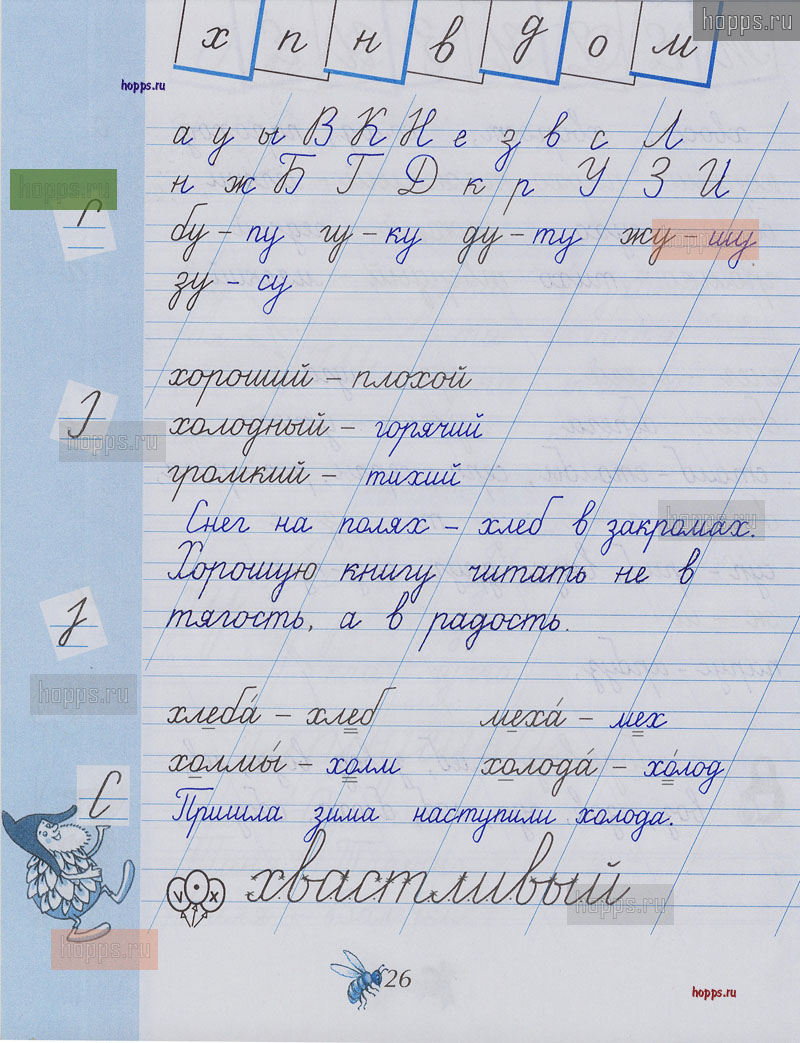 х п н в д о м
hopps.ru
hopps.ru
а у ы В К Н е з в с Л
н ж Б Г Д к р У З И
hopps.ru
бу – пу гу – ку ду – ту жу – шу
hopps.ru
зу – су
хороший – плохой
холодный – горячий
hopps.ru
громкий – тихий
Снег на полях – хлеб в закромах.
hopps.ru
Хорошую книгу читать не в
тягость, а в радость.
hopps.ru
хлеба́ – хлеб меха́ – мех
холмы́ – холм холода́ – хо́лод
Пришла зима наступили холода.
хвастливый
V • X
hopps.ru
hopps.ru
26
hopps.ru